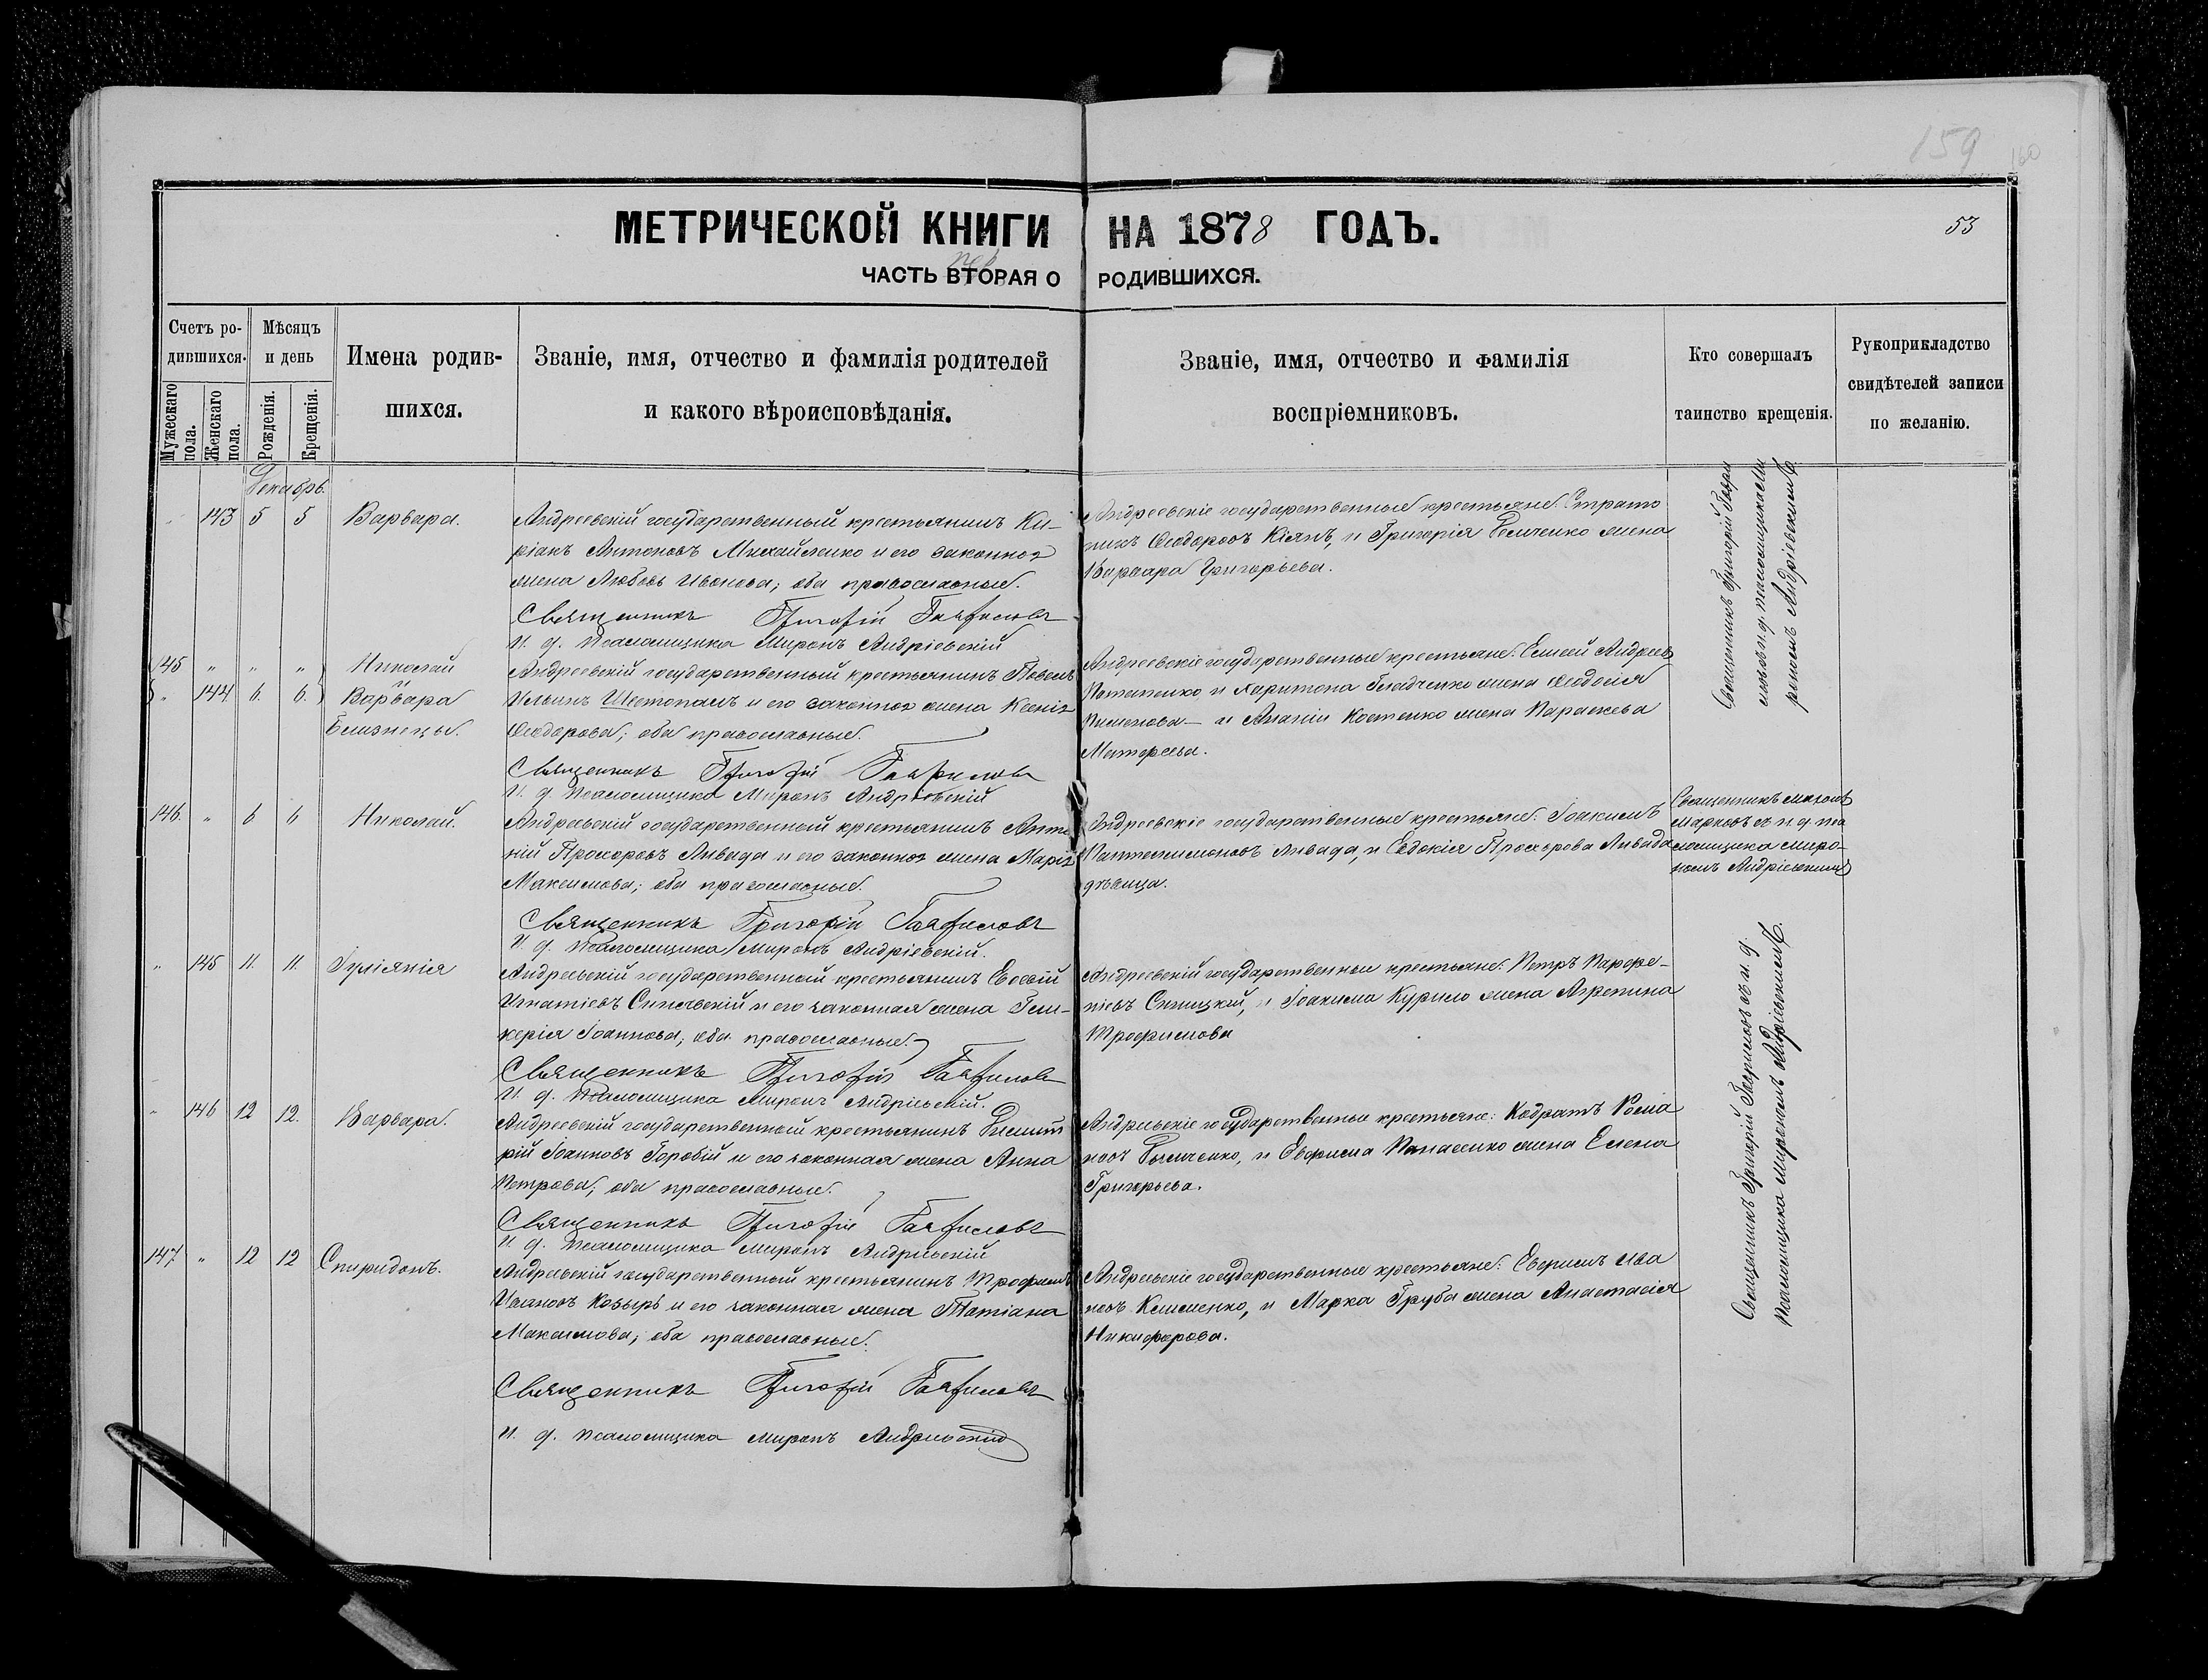 159 160
МЕТРИЧЕСКОЙ КНИГИ НА 1878 ГОДЪ.
53
ЧАСТЬ ВТОРАЯ О РОДИВШИХСЯ.
Счетъ ро-
дившихся.
Мужескаго пола.
Женскаго пола.
Мѣсяцъ
и день
Рожденія.
Крещенія.
Имена родив-
шихся.
Званіе, имя, отчество и фамилія родителей
и какого вѣроисповѣданія.
Званіе, имя, отчество и фамилія
воспріемниковъ.
Кто совершалъ
таинство крещенія.
Рукоприкладство
свидѣтелей записи
по желанію.
Декабрь.
143 5 5 Варвара.
Андреевскій государственный крестьянинъ Ки-
ріакъ Антоновъ Михайленко и его законная
жена Любовь Иванова; оба православные.
Священникъ Григорій Гавриловъ
И. д. Псаломщика Миронъ Андріевскій
Андреевскіе государственные крестьяне: Страто
никъ Ѳеодоровъ Кіянъ, и Григорія жена
Варвара Григорьева.
Священникъ Григорій Гаври
ловъ съ и. д. псаломщика Ми
рономъ Андріевскимъ.
145 " " " Николай
" 144 6. 6. Варвара
Близнецы.
Андреевскій государственный крестьянинъ Павелъ
Ильинъ Шестопалъ и его законная жена Ксенія
Ѳеодорова; оба православные.
Священникъ Григорій Гавриловъ
И. д. Псаломщика Миронъ Андріевскій
Андреевскіе государственные крестьяне: Елисей Андреевъ
Потапенко, и Харитона Гладченко жена Ѳеодосія
Пименова — и Ананіи Костенко жена Параскева
Матфеева.
146. " 6 6 Николай.
Андреевскій государственный крестьянинъ Анто
ній Прохоровъ Ливада и его законная жена Марія
Максимова; оба православные.
Священникъ Григорій Гавриловъ
И. д. Псаломщика Миронъ Андріевскій.
Андреевскіе государственные крестьяне: Іоакимъ
Пантелеимоновъ Ливада, и Евдокія Прохорова Ливада
дѣвица.
Священникъ
Марковъ съ и. д. пса
ломщика Миро-
номъ Андріевскимъ
" 145 11. 11. Іуліанія
Андреевскій государственный крестьянинъ Евсевій
Игнатіевъ и его законная жена Гли-
керія Іоаннова; оба православные.
Священникъ Григорій Гавриловъ
И. д. Псаломщика Миронъ Андріевскій.
Андреевскій государственные крестьяне: Петръ Парфе-
ніевъ Синицкій, и Іоакима Курило жена Агрепина
Трофимова
" 146 12 12. Варвара.
Андреевскій государственный крестьянинъ Димит
рій Іоанновъ Горобій и его законная жена Анна
Петрова; оба православные.
Священникъ Григорій Гавриловъ
И. д. Псаломщика Миронъ Андріевскій
Андреевскіе государственные крестьяне: Кодратъ Рома
новъ и Евфима Панасенко жена Елена
Григорьева.
Священникъ Григорій Гавриловъ съ и. д.
Псаломщика Мирономъ Андріевскимъ.
147 " 12 12 Спиридонъ.
Андреевскій государственный крестьянинъ Трофимъ
Ивановъ Козырь и его законная жена Татіана
Максимова; оба православные.
Священникъ Григорій Гавриловъ
И. д. Псаломщика Миронъ Андріевскій
Андреевскіе государственные крестьяне: Евфимъ Ива
новъ Клименко, и Марка Груба жена Анастасія
Никифорова.